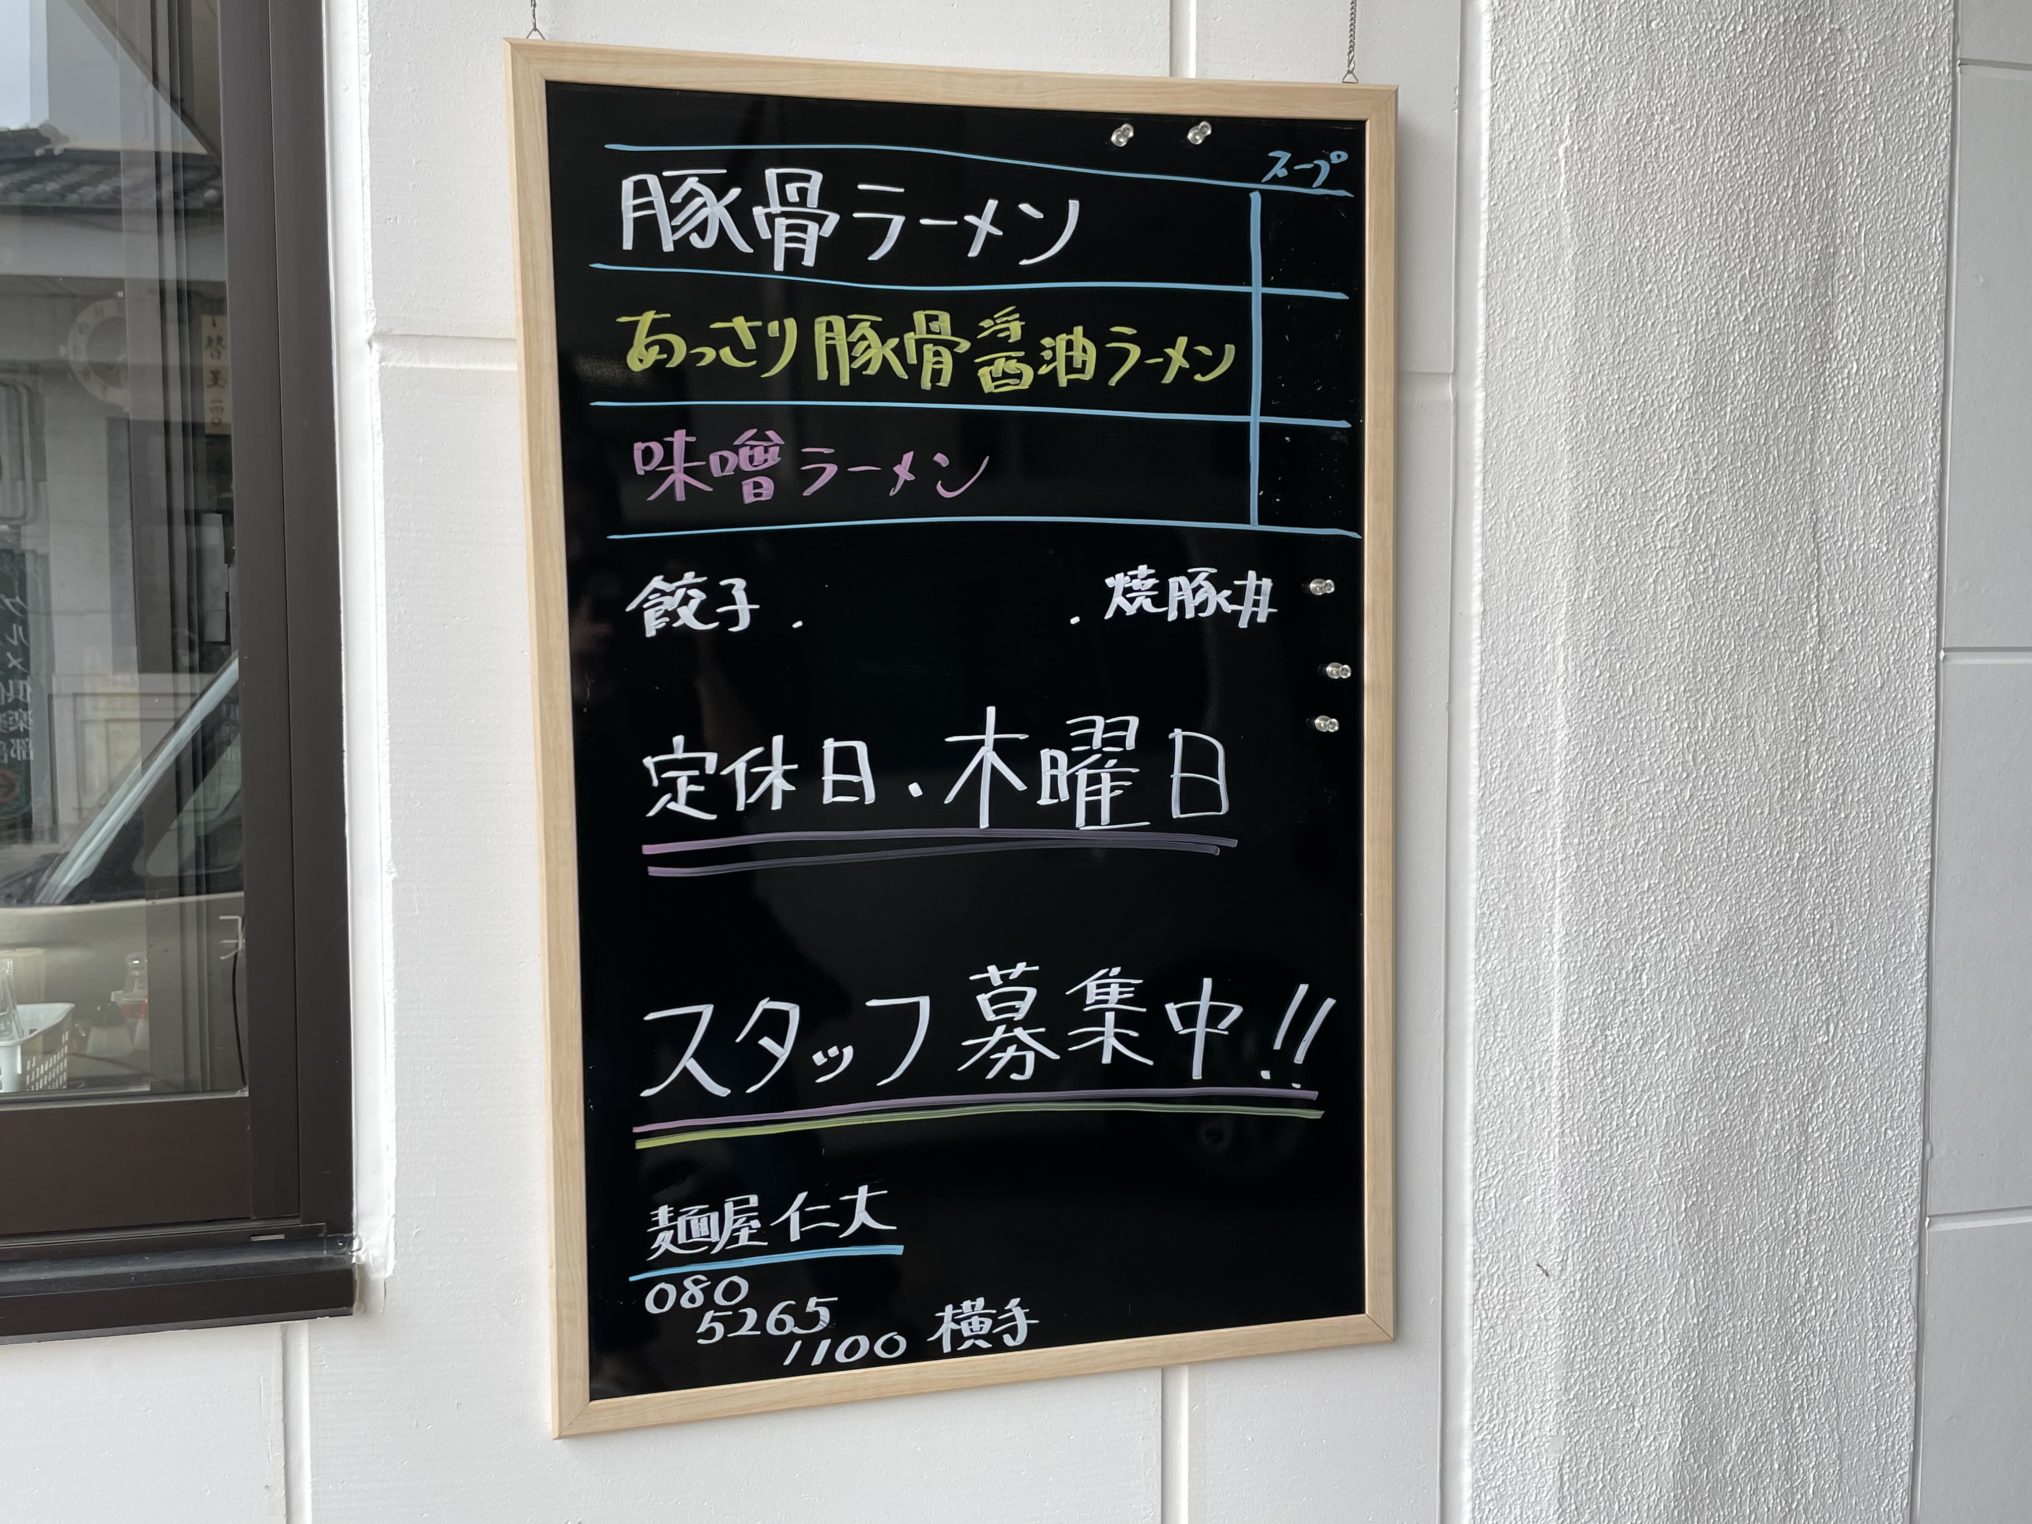 スープ
豚骨ラーメン
あっさり豚骨醤油ラーメン
味噌ラーメン
餃子. .焼豚丼
定休日.木曜日
スタッフ募集中!!
麺屋仁大
080
5265
1100 横手